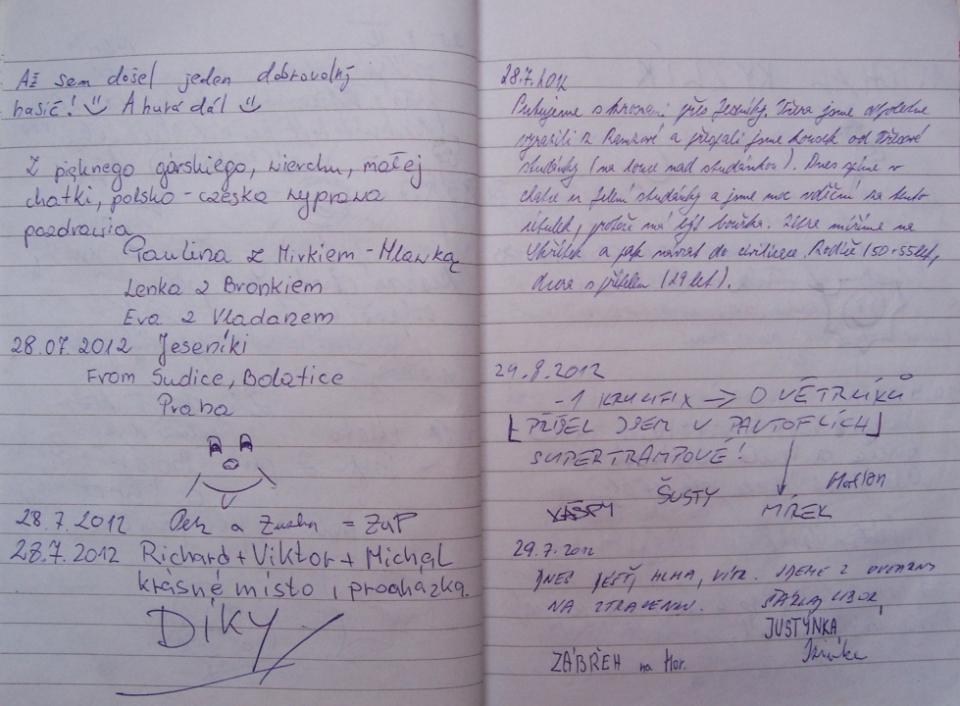 Až sem došel jeden dobrovolný
hasič! Ahurá dál
Z pięknego górskiego, wierchu, małej
chatki, polsko-czeska wyprawa
pozdrawia
Paulina z Mirkiem-Mlawką
Lenka z Bronkiem
Eva z Vladanem
28.07.2012 Jeseníki
From Sudice, Bolatice
Praha
28.7.2012 a = ZUP
28.7.2012 Richard+Viktor+Michal
krásné místo i procházka.
DÍKY
28.7.2012
Putujeme s přes Jeseníky. Včera jsme odpoledne
vyrazili z Ramzové a přejali jsme kousek od
studánky (na louce nad studánkou). Dnes spíme v
chatce u Jelení studánky a jsme moc vděční za tento
útulek, protože má být bouřka. Zítra míříme na
Ovčárnu a pak návrat do civilizace. Rodiče (50+55let,
dcera s přítelem (29 let).
24.8.2012
-1 KRUCIFIX → O VĚTRNÍKŮ
[PŘIŠEL JSEM V PANTOFLÍCH]
SUPERTRAMPOVÉ!
ŠUSTY
MÍREK
29.7.2012
DNES JEŠTĚ MLHA, VÍTR. JDEME Z OVČÁRNY
NA
JUSTÝNKA
ZÁBŘEH na Mor.